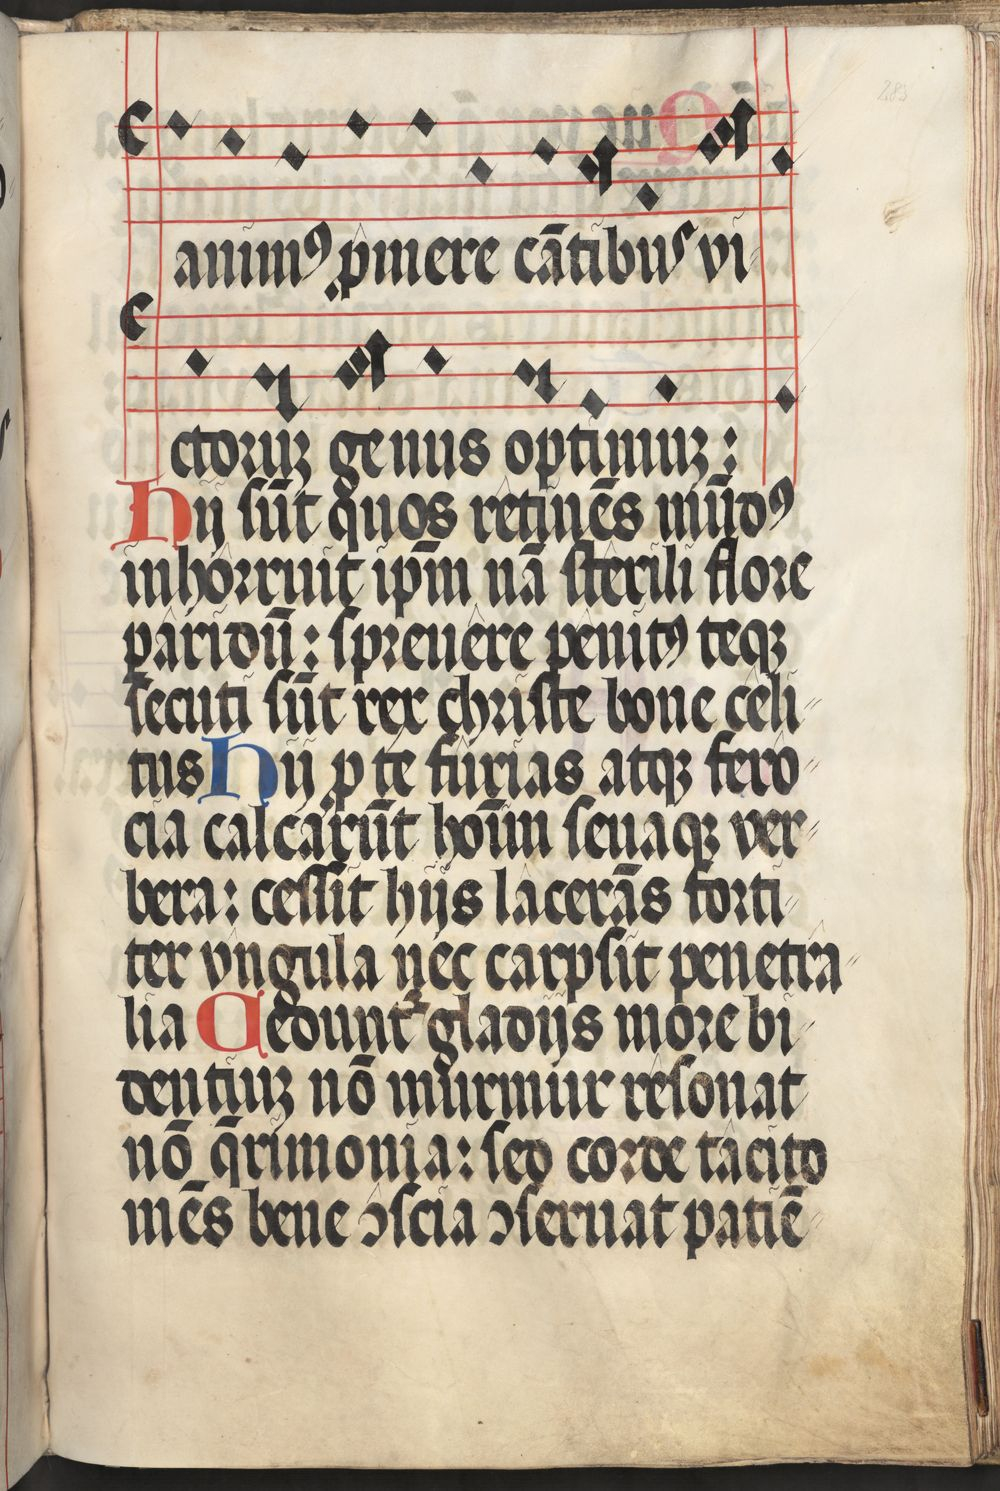 283
animꝰ ꝓmere cātibus vi
ctoruꝫ genus optimuꝫ :
Hij sūt quos retinēs mūdꝰ
inhorruit ip̄m nā sterili flore
paridū : spreuere penitꝰ teqꝫ
secuti sūt rex christe bone celi
tus Hij p te furias atqꝫ fero
cia calcarūt hoīm seuaqꝫ ver
bera : cessit hijs lacerās forti
ter vngula nec carpsit penetra
lia Cedunt gladijs more bi
dentiuꝫ nō murmur resonat
nō q̄rimonia : sed corde tacito
mēs bene ↄscia ↄseruat patiē